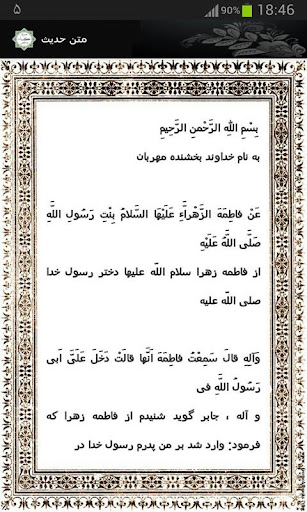 ۵ 90% 18:46
متن حدیث
بِسْمِ اللَّهِ الرَّحْمنِ الرَّحیمِ
به نام خداوند بخشنده مهربان
عَنْ فاطِمَهَ الزَّهْراَّءِ عَلَیْهَا السَّلامُ بِنْتِ رَسُولِ اللَّهِ
صَلَّى اللَّهُ عَلَیْهِ
از فاطمه زهرا سلام اللّه علیها دختر رسول خدا
صلى اللّه علیه
وَآلِهِ قالَ سَمِعْتُ فاطِمَهَ اَنَّها قالَتْ دَخَلَ عَلَىَّ اَبى
رَسُولُ اللَّهِ فى
و آله ، جابر گوید شنیدم از فاطمه زهرا که
فرمود: وارد شد بر من پدرم رسول خدا در